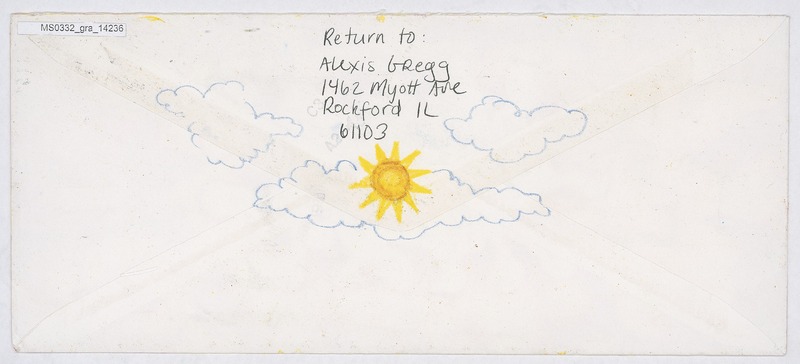 MS0332_gra_14236
Return to:
Alexis Gregg
1462 Myott Ave
Rockford IL
61103